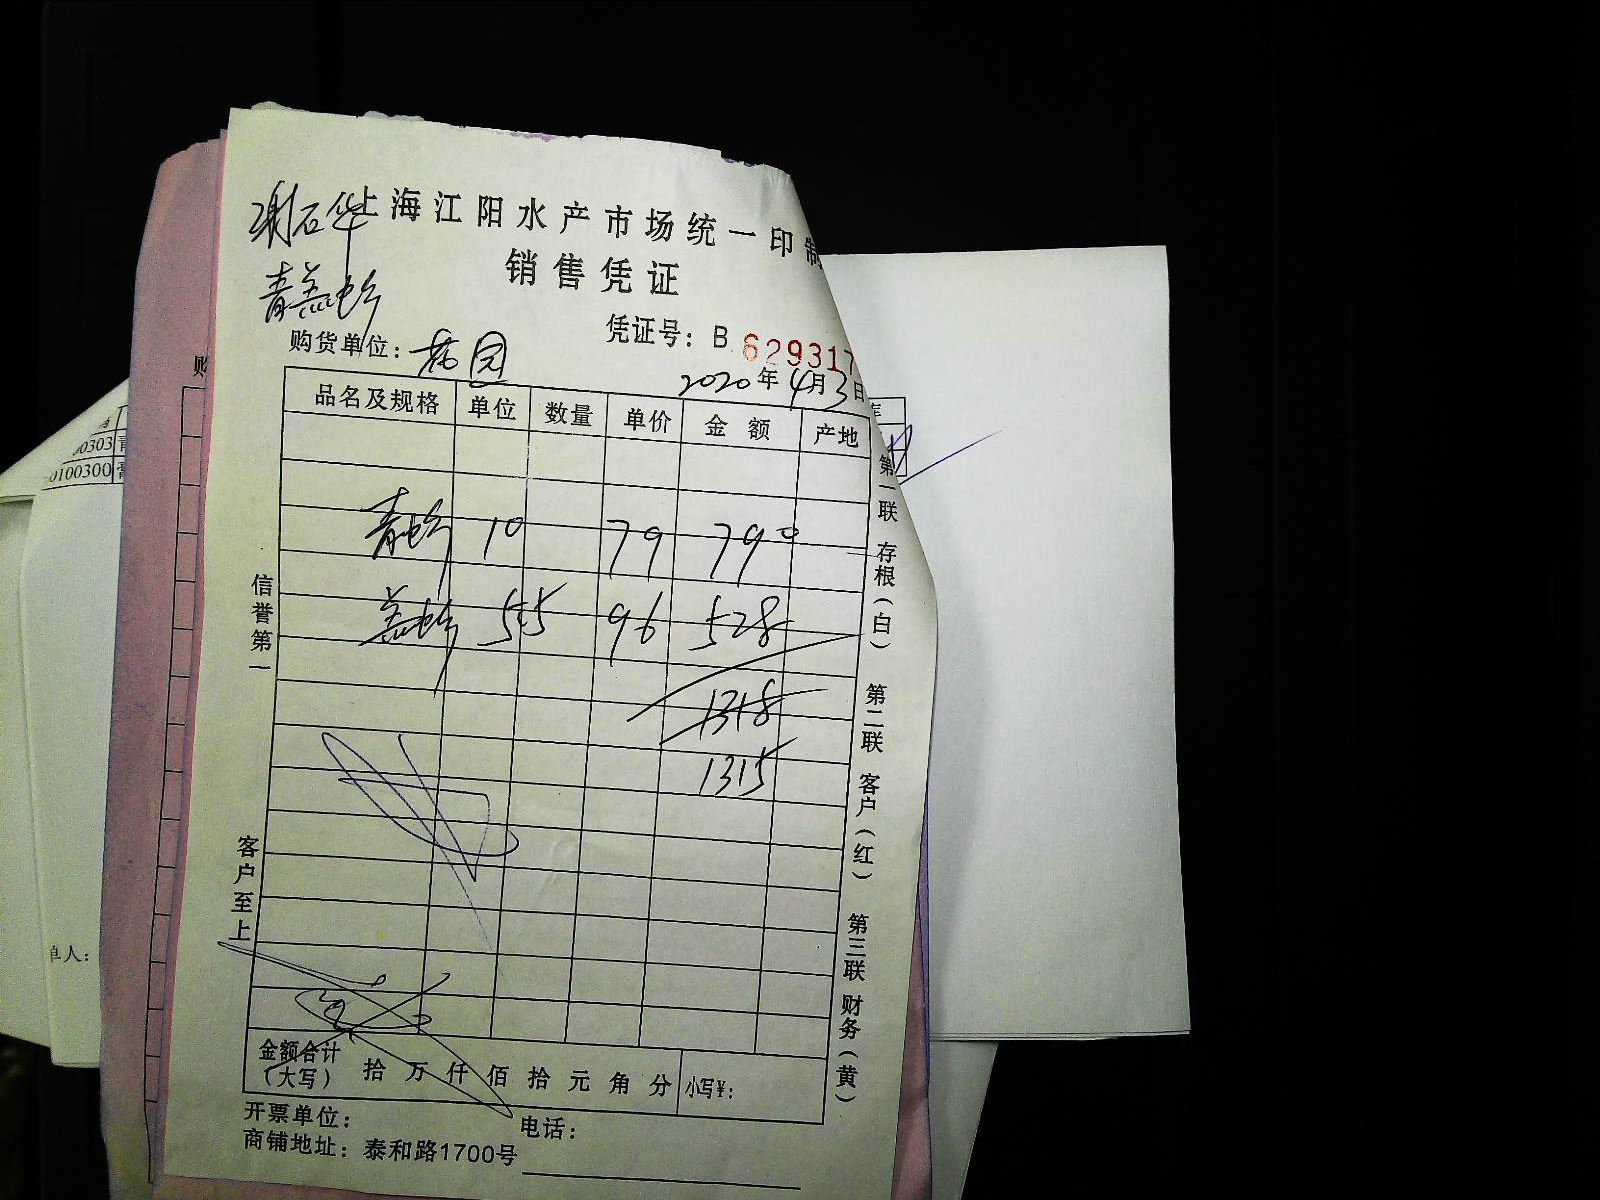 上海江阳水产市场统一印制
销售凭证
凭证号：B 629317
购货单位：花园
2020年4月3日
品名及规格 单位 数量 单价 金额 产地
10 79 790
5.5 96 528
1318
1315
金额合计
（大写） 拾 万 仟 佰 拾 元 角 分 小写¥：
开票单位： 电话：
商铺地址：泰和路1700号
信誉第一
客户至上
第一联 存根（白） 第二联 客户（红） 第三联 财务（黄）
购
00303
0100300
单人：